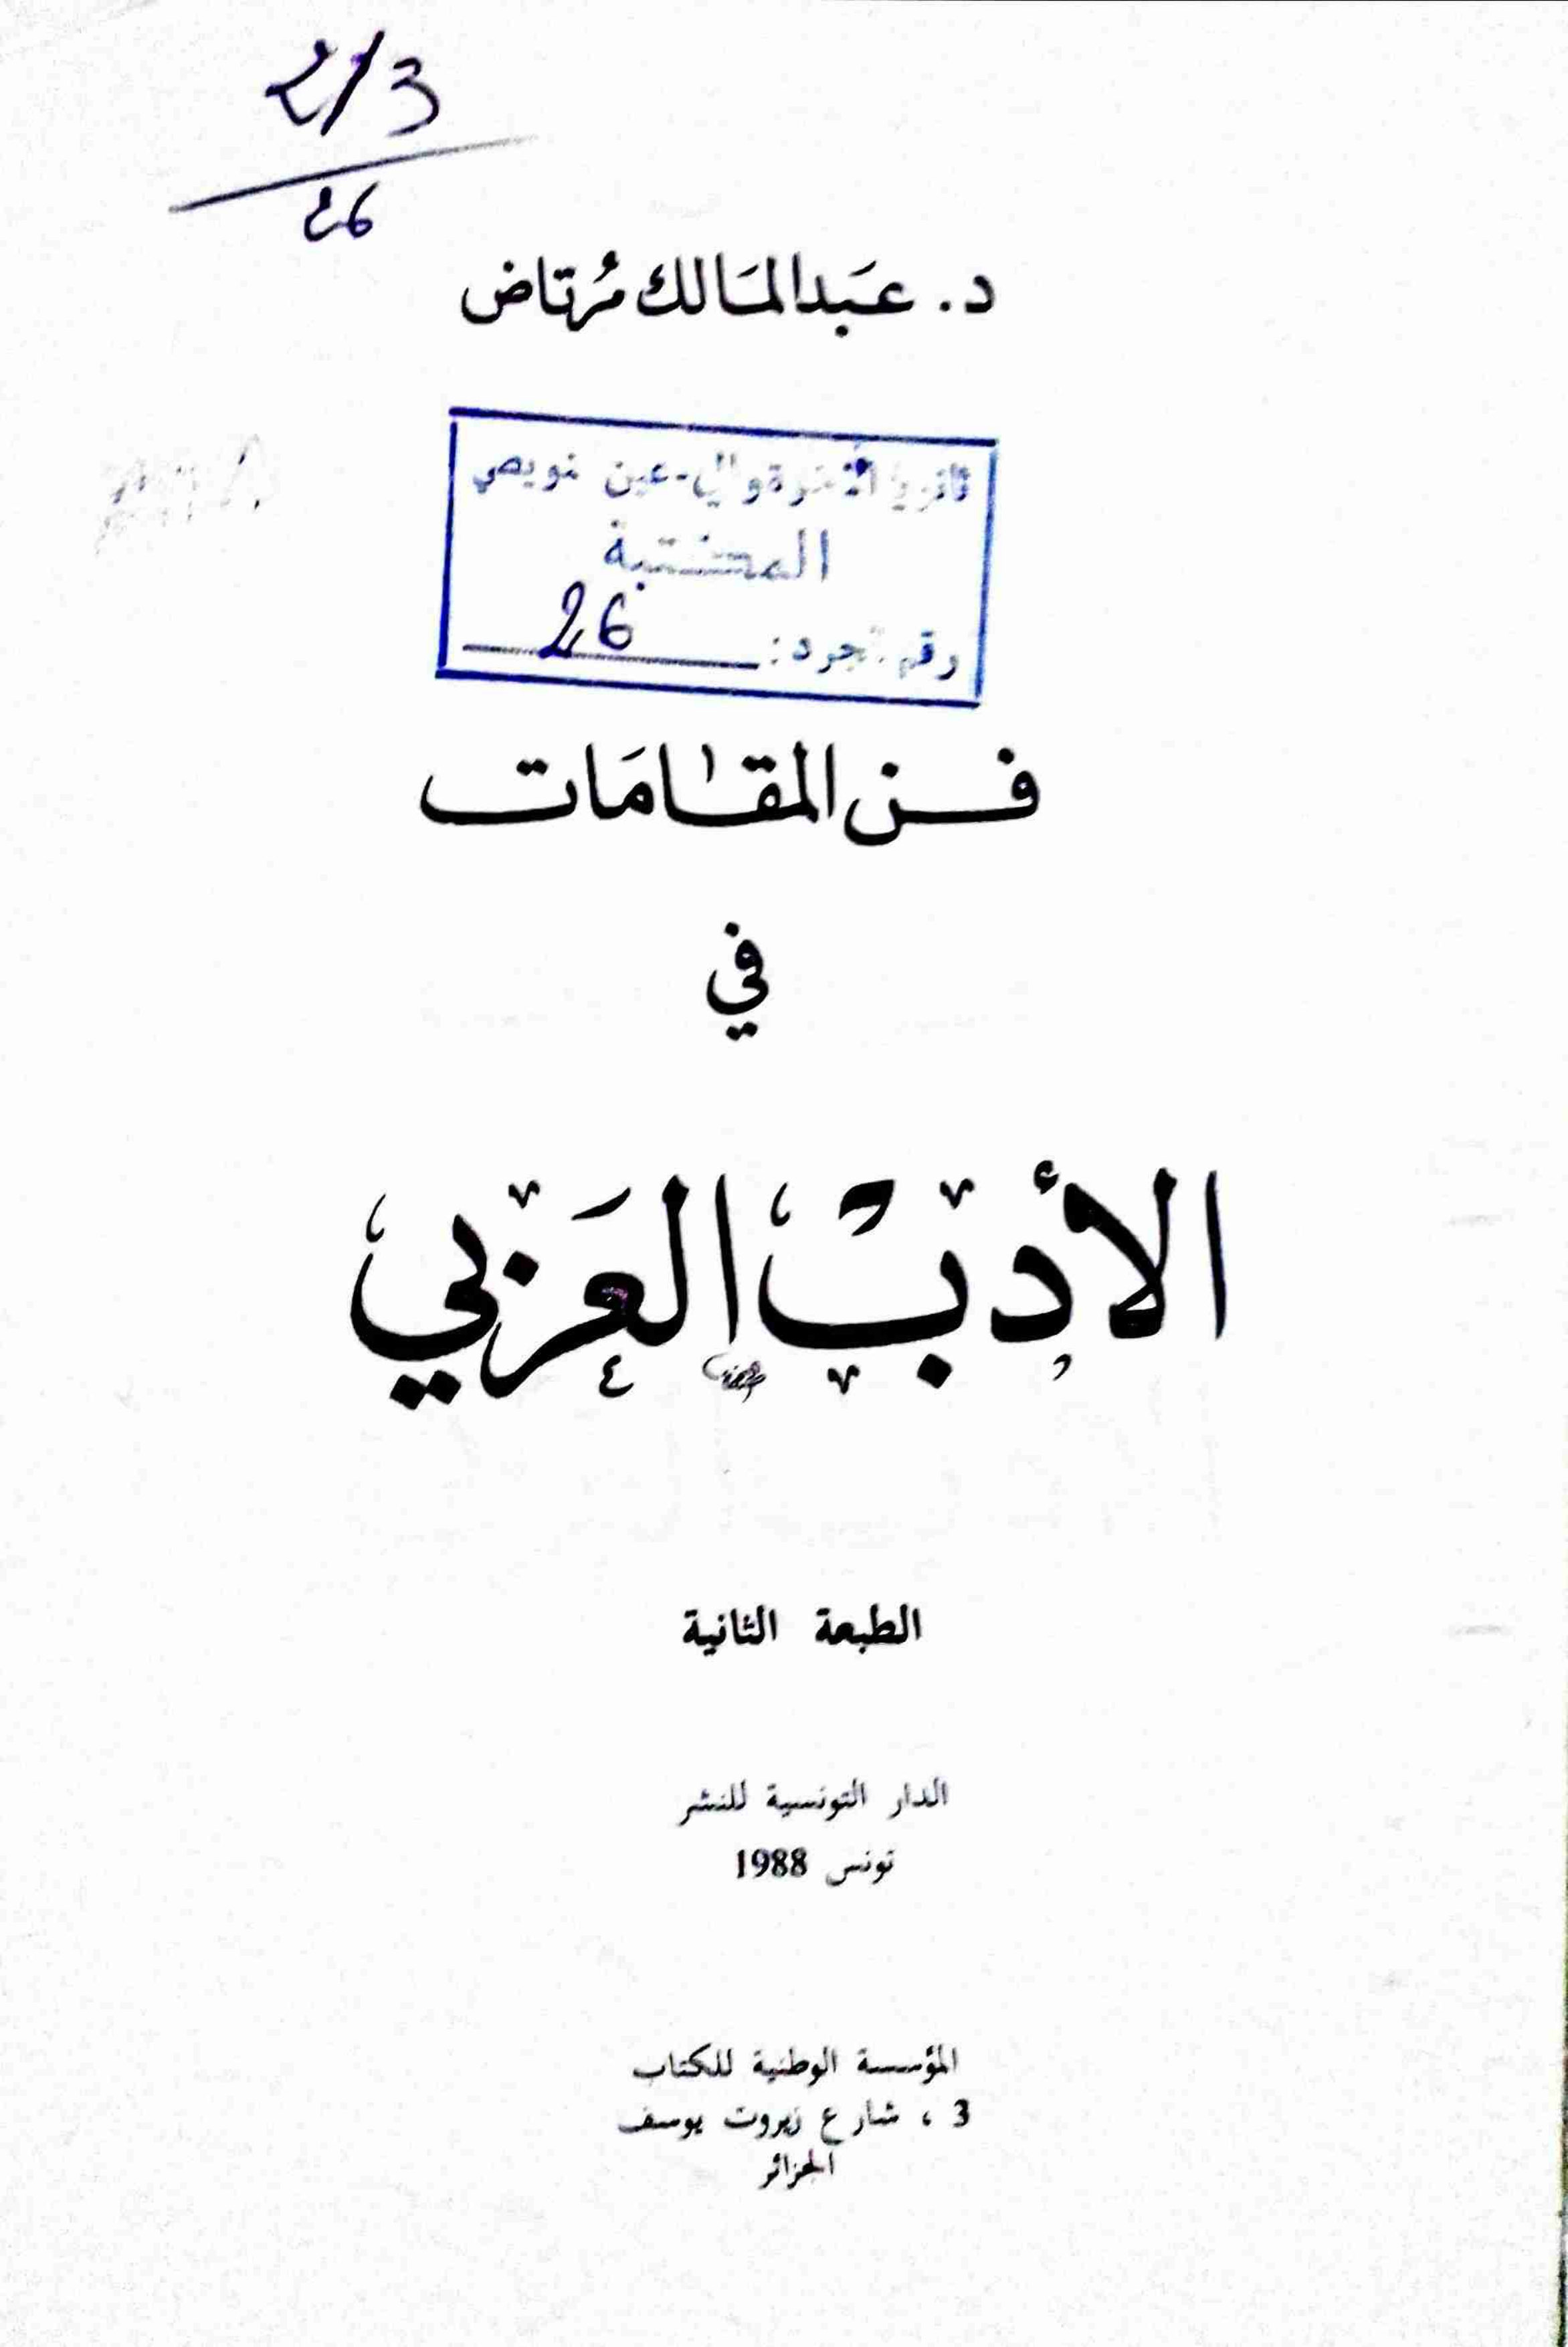 2/3
26
د. عَبد المَالك مُرتاض
عين
المكتبة
رقم الجرد: 26
فن المقامَات
في
الأدب العَربي
الطبعة الثانية
الدار التونسية للنشر
تونس 1988
المؤسسة الوطنية للكتاب
3 ، شارع زيروت يوسف
الجزائر